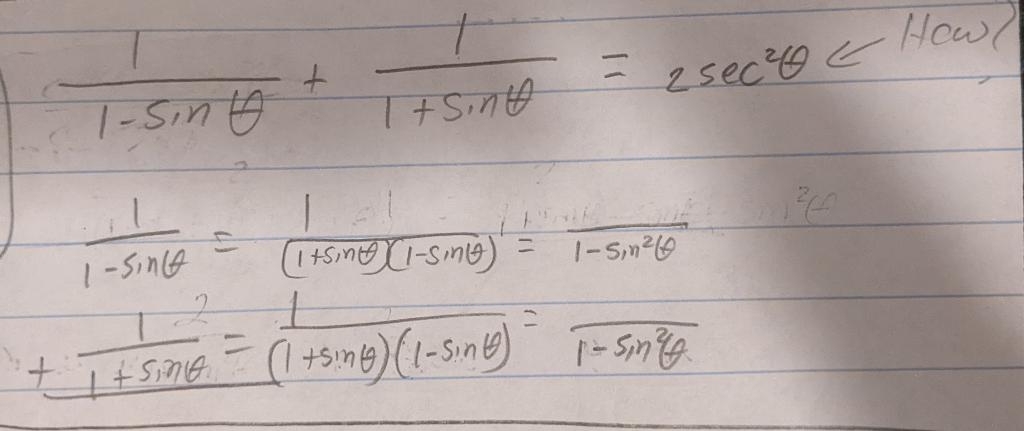 1/(1-sinθ) + 1/(1+sinθ) = 2sec²θ ← How?
1/(1-sinθ) = 1/((1+sinθ)(1-sinθ)) = /(1-sin²θ)
+ 1/(1+sinθ) = 1/((1+sinθ)(1-sinθ)) = /(1-sin²θ)